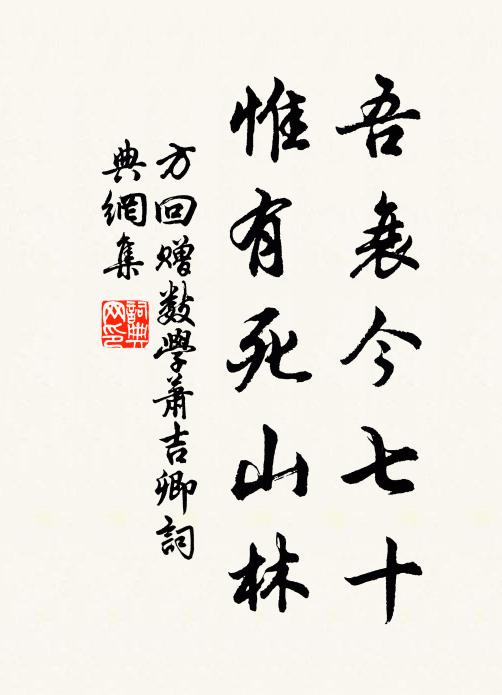 吾衰今七十
惟有死山林
方回贈数學蕭吉卿詞
典網集
詞典
网印